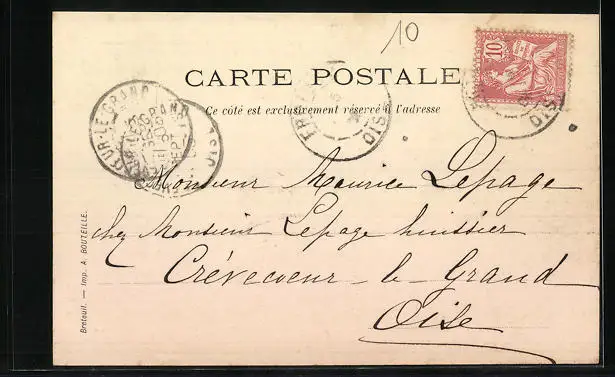 10
10
CARTE POSTALE
Ce côté est exclusivement réservé à l'adresse
CŒUR-LE-GRAND
OISE
Monsieur Maurice Lepage
chez Monsieur Lepage huissier
Crèvecoeur-le-Grand
Oise
Breteuil. — Imp. A. BOUTEILLE.